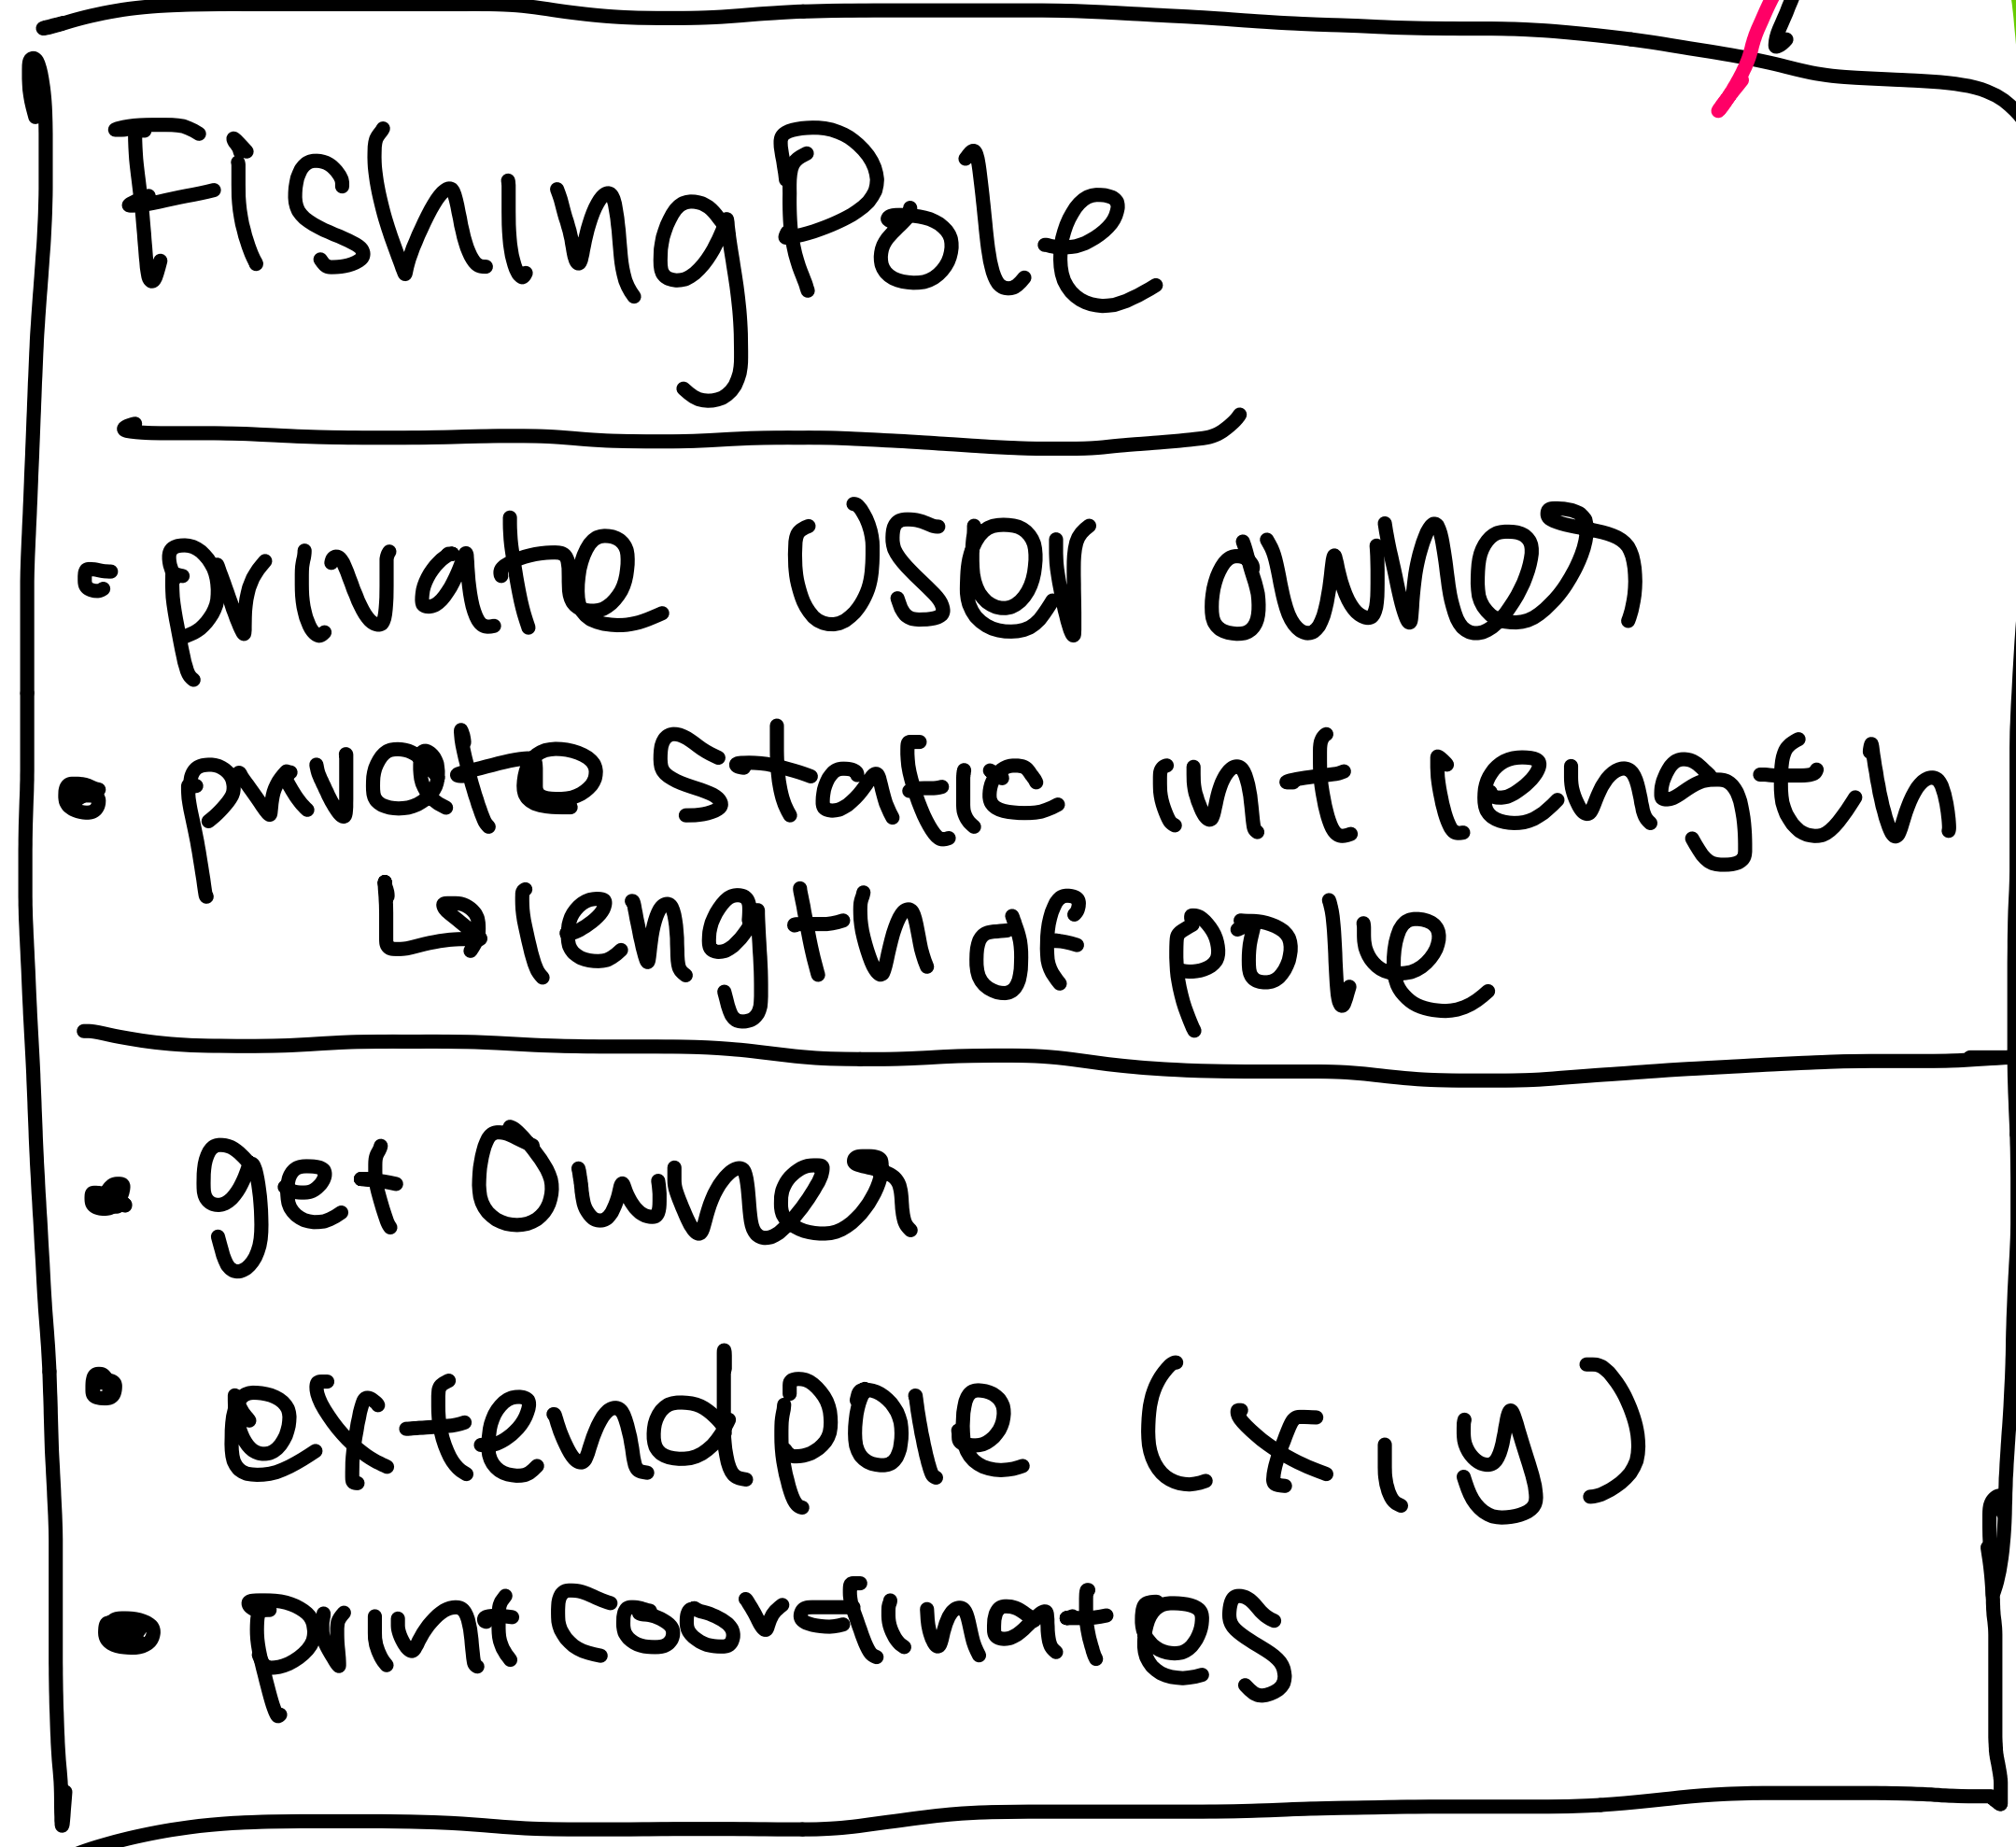 FishingPole
- private User owner
- private static int length
↳ length of pole
- get Owner
- extendpole (x, y)
- print Coordinates